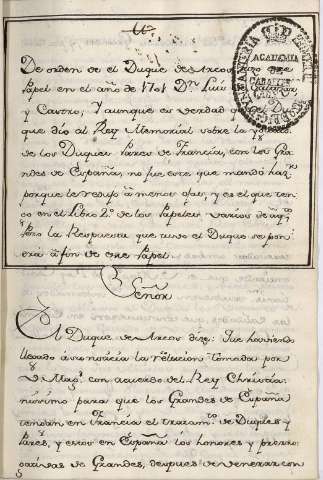 De orden de el Duque de Arcos hizo este
Papel en el año de 1701 Dn. Luis de Salazar
y Castro, Y aunque es verdad que el Duque
que dio al Rey Memorial sobre la
de los Duques Pares de Francia, con los Gran
des de España, no fue este que mandó haz.r
porque le redujo à menos ojas, y es el que ten
go en el Libro 2º de los Papeles varios de
Pero la Respuesta que tuvo el Duque se pon
drà à fin de este Papel
Señor
El Duque de Arcos dize: Que haviendo
llegado à su noticia la resolucion tomada por
V. Mag.d con acuerdo del Rey Christia
nissimo para que los Grandes de España
tengan en Francia el tratam.to de Duques y
Pares, y estos en España los honores y prerro
gativas de Grandes, despues de venerar con
ACADEMIA
DE